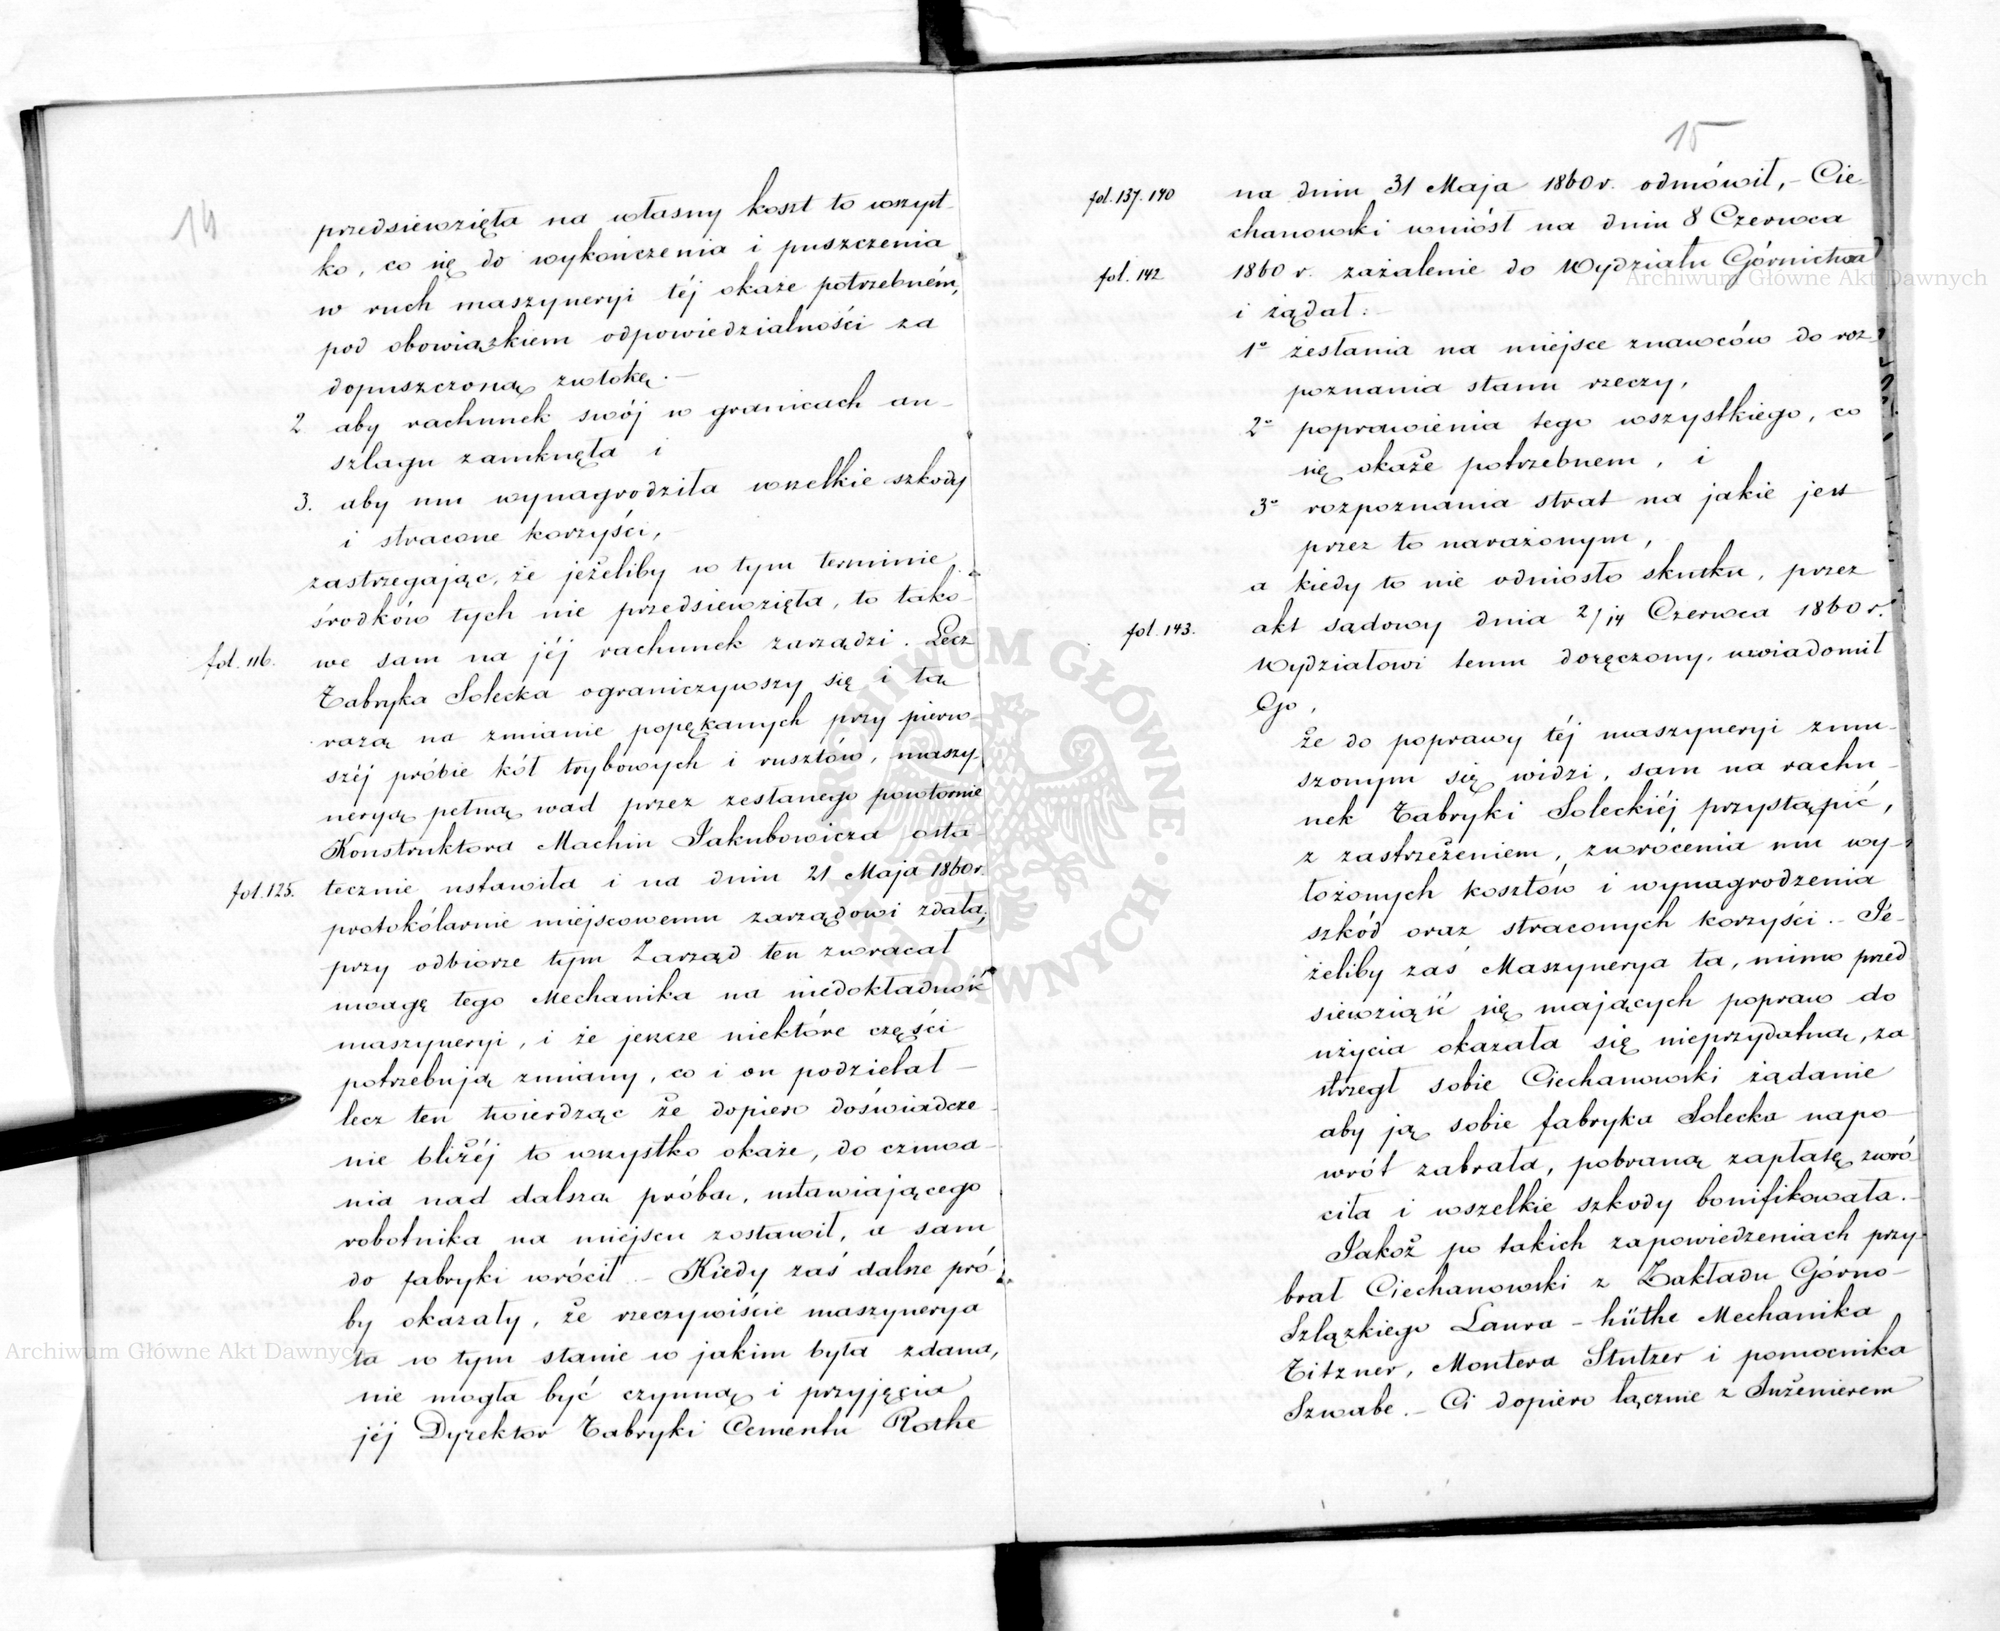 14
przedsiewzięła na własny koszt to wszyst-
ko, co się do wykończenia i puszczenia
w ruch maszyneryi téj okaże potrzebném,
pod obowiązkiem odpowiedzialności za
dopuszczoną zwłokę. –
2 aby rachunek swój w granicach an-
szlagu zamknęła i
3. aby mu wynagrodziła wszelkie szkody
i stracone korzyści, –
zastrzegając, że jeżeliby w tym terminie
środków tych nie przedsiewzięła, to tako-
fol. 116. we sam na jéj rachunek zarządzi. Lecz
Fabryka Solecka ograniczywszy się i tą
razą na zmianie popękanych przy pierw-
széj próbie kół trybowych i rusztów, maszy-
neryą pełną wad przez zesłanego powtórnie
Konstruktora Machin Jakubowicza osta-
fol. 125. tecznie ustawiła i na dniu 21 Maja 1860 r.
protokólarnie miejscowemu zarządowi zdała;
przy odbiorze tym Zarząd ten zwracał
uwagę tego Mechanika na niedokładność
maszyneryi, i że jeszcze niektóre części
potrzebują zmiany, co i on podzielał –
lecz ten twierdząc że dopiero doświadcze-
nie bliżéj to wszystko okaże, do czuwa-
nia nad dalszą próbą, ustawiającego
robotnika na miejscu zostawił, a sam
do fabryki wrócił. – Kiedy zaś dalsze pró-
by okazały, że rzeczywiście maszynerya
ta w tym stanie w jakim była zdana,
nie mogła być czynną i przyjęcia
jéj Dyrektor Fabryki Cementu Rothe
15
fol. 137. 140 na dniu 31 Maja 1860 r. odmówił, – Cie-
chanowski wniósł na dniu 8 Czerwca
fol. 142 1860 r. zażalenie do Wydziału Górnictwa
i żądał: –
1º zesłania na miejsce znawców do roz-
poznania stanu rzeczy,
2º poprawienia tego wszystkiego, co
się okaże potrzebnem, i
3º rozpoznania strat na jakie jest
przez to narażonym,
a kiedy to nie odniosło skutku, przez
fol. 143. akt sądowy dnia 2/14 Czerwca 1860 r.
Wydziałowi temu doręczony, uwiadomił
Go,
że do poprawy téj maszyneryi zmu-
szonym się widzi, sam na rachu-
nek Fabryki Soleckiéj przystąpić,
z zastrzeżeniem, zwrócenia mu wy-
łożonych kosztów i wynagrodzenia
szkód oraz straconych korzyści. – Je-
żeliby zaś Maszynerya ta, mimo przed
siewziąść się mających popraw do
użycia okazała się nieprzydatną, za
strzegł sobie Ciechanowski żądanie
aby ją sobie fabryka Solecka napo-
wrót zabrała, pobraną zapłatę zwró-
ciła i wszelkie szkody bonifikowała. –
Jakoż po takich zapowiedzeniach przy-
brał Ciechanowski z Zakładu Górno-
Szlązkiego Laura-hüthe Mechanika
Fitzner, Montera Stutzer i pomocnika
Szwabe. – Ci dopiero łącznie z Inżenierem
Archiwum Główne Akt Dawnych
Archiwum Główne Akt Dawnych
ARCHIWUM GŁÓWNE AKT DAWNYCH